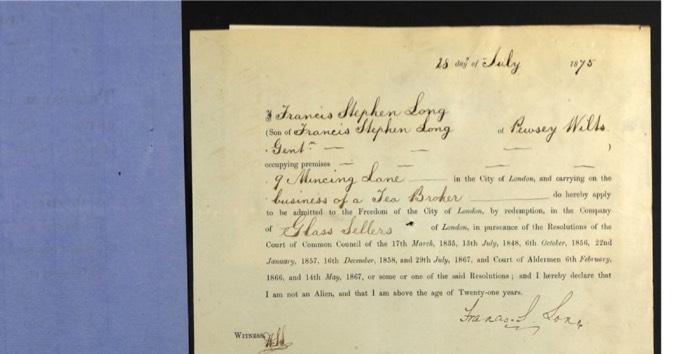 28 day of July 1875
I Francis Stephen Long
(Son of Francis Stephen Long of Pewsey Wilts
Gentn — — — )
occupying premises — — —
9 Mincing Lane in the City of London, and carrying on the
business of a Tea Broker do hereby apply
to be admitted to the Freedom of the City of London, by redemption, in the Company
of Glass Sellers of London, in pursuance of the Resolutions of the
Court of Common Council of the 17th March, 1835, 13th July, 1848, 6th October, 1856, 22nd
January, 1857, 16th December, 1858, and 29th July, 1867, and Court of Aldermen 6th February,
1866, and 14th May, 1867, or some or one of the said Resolutions; and I hereby declare that
I am not an Alien, and that I am above the age of Twenty-one years.
Francis S Long
WITNESS